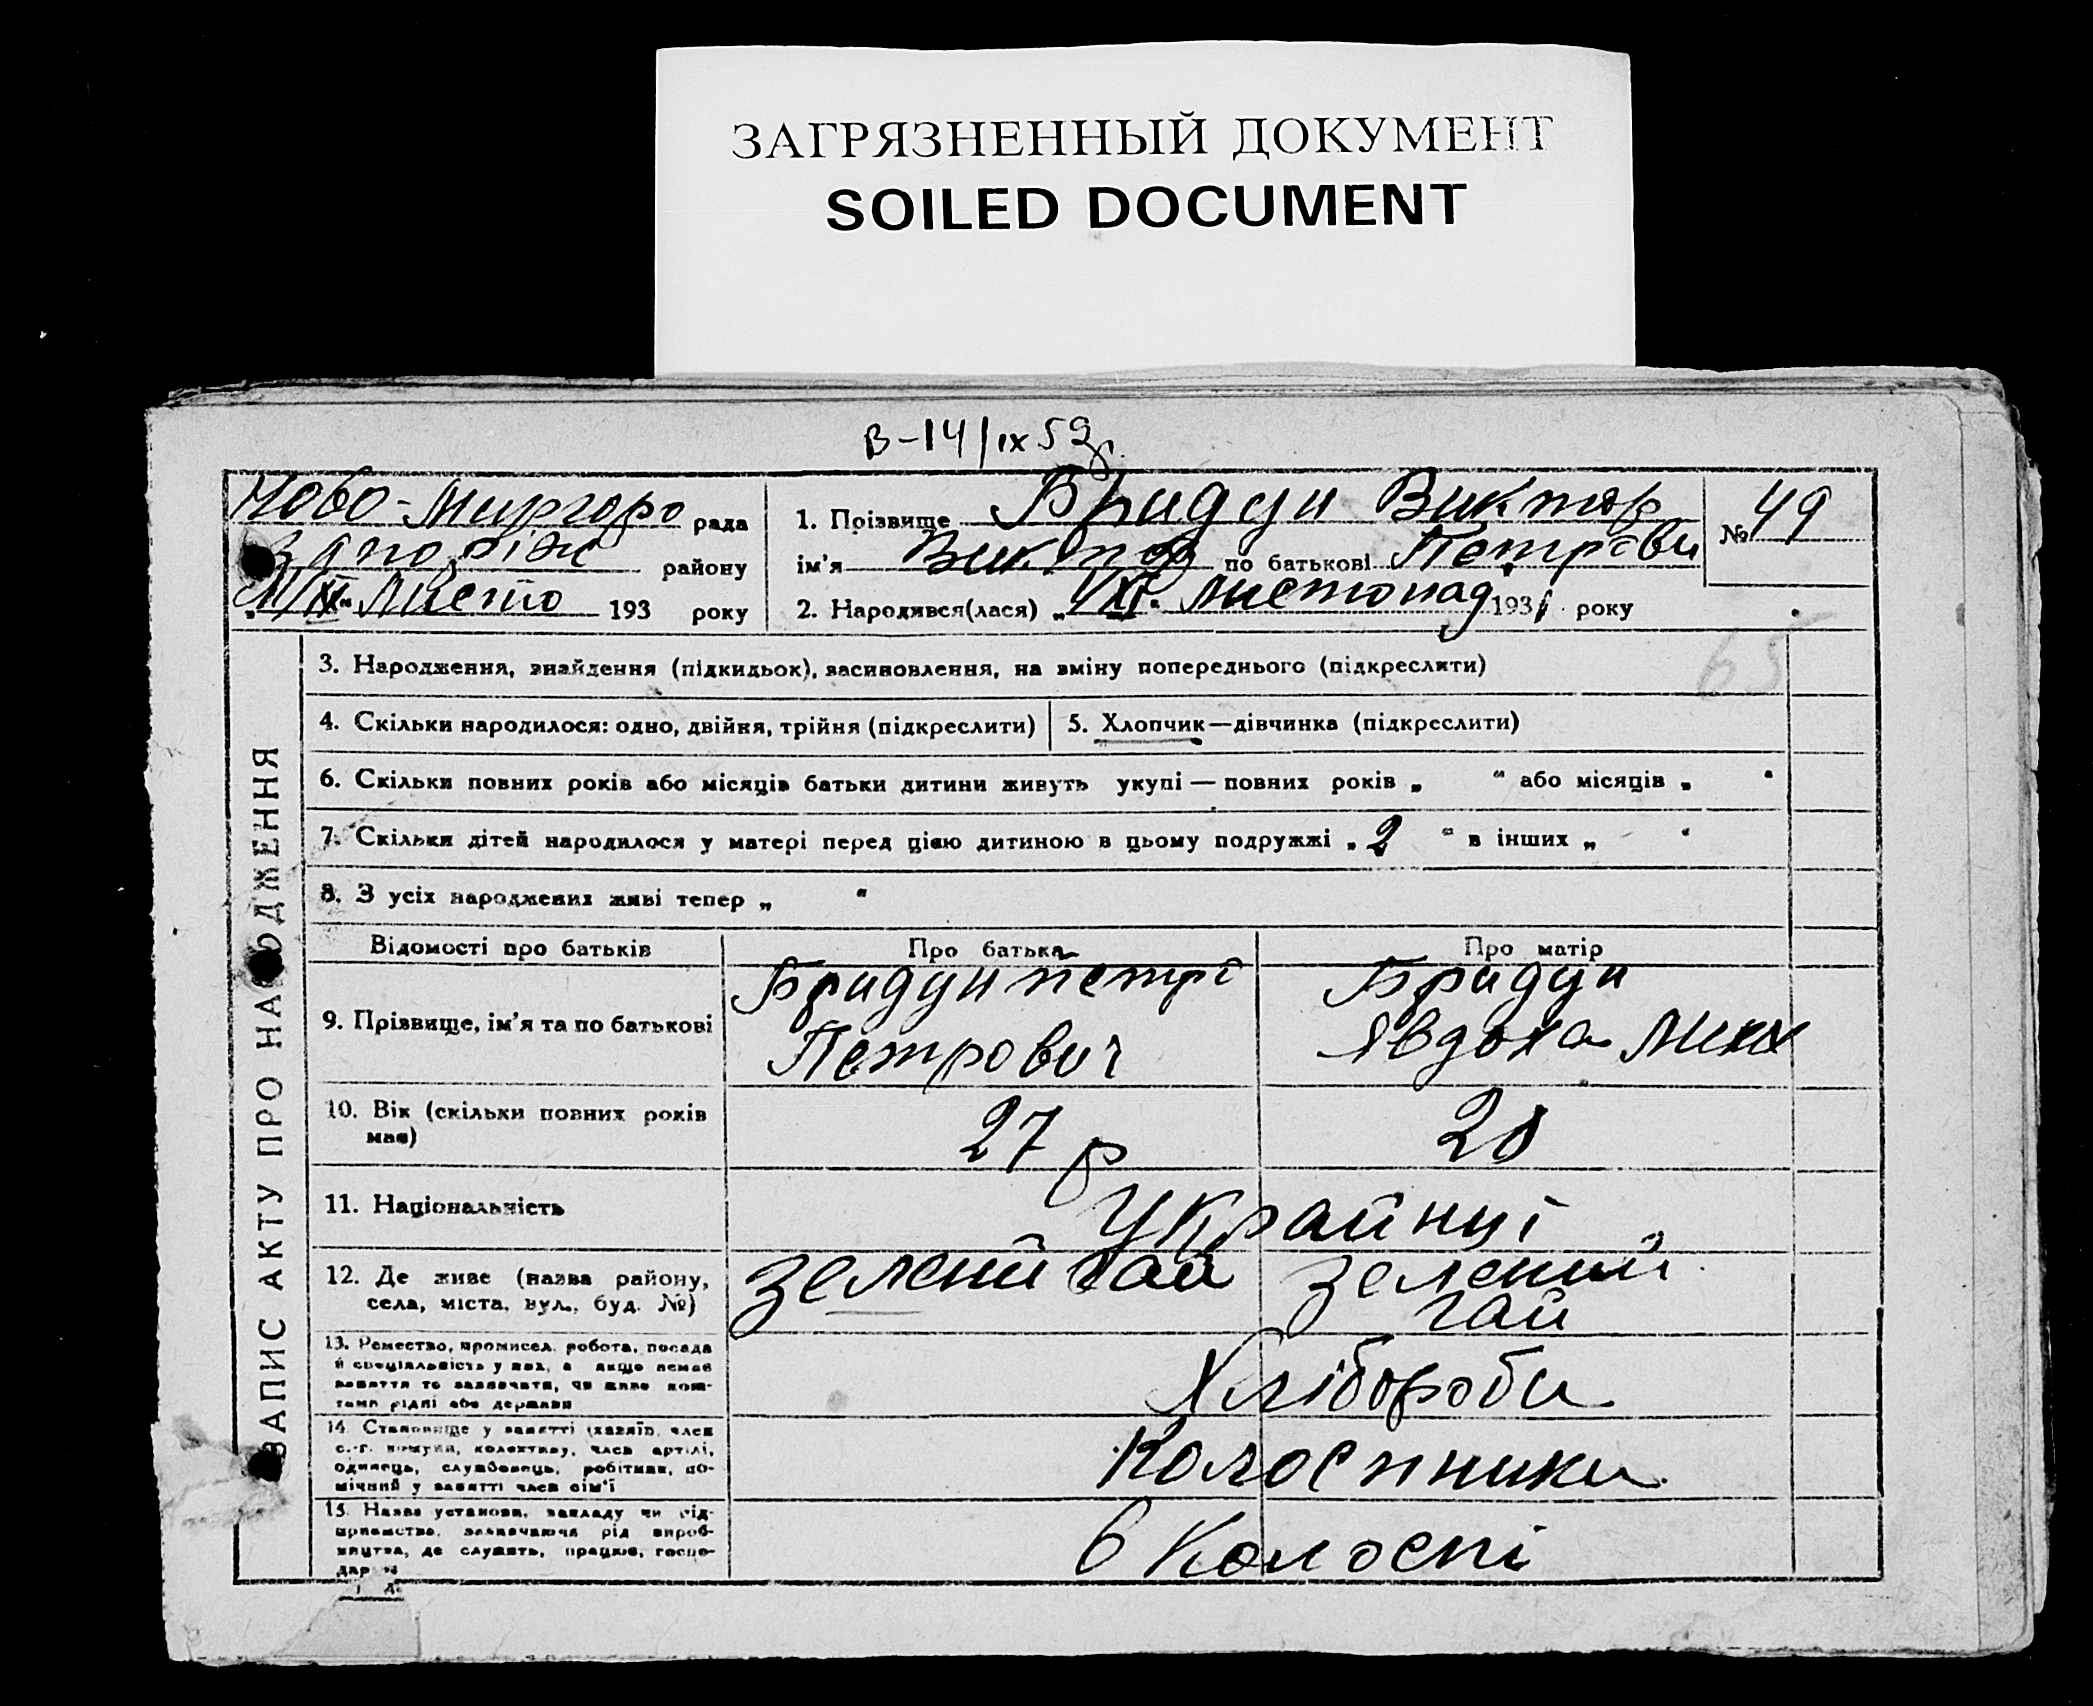 ЗАГРЯЗНЕННЫЙ ДОКУМЕНТ
SOILED DOCUMENT
В-14/IX 59р.
Ново-Миргоро рада
Запоріж району
193 року
Листо
1. Прізвище Бридун Виктор
ім'я Виктор по батькові Петрови
№ 49
2. Народився(лася) „ XI “ Листопад 1931 року
65
ЗАПИС АКТУ ПРО НАРОДЖЕННЯ
3. Народження, знайдення (підкидьок), засиновлення, на зміну попереднього (підкреслити)
4. Скільки народилося: одно, двійня, трійня (підкреслити)
5. Хлопчик—дівчинка (підкреслити)
6. Скільки повних років або місяців батьки дитини живуть укупі — повних років „ “ або місяців „ “
7. Скільки дітей народилося у матері перед цією дитиною в цьому подружжі „ 2 “ в інших „ “
8. З усіх народжених живі тепер „ “
Відомості про батьків
Про батька
Про матір
9. Прізвище, ім'я та по батькові
Бридун Петро
Петрович
Бридун
Явдоха Мих
10. Вік (скільки повних років
має)
27 р
28
11. Національність
Українці
12. Де живе (назва району,
села, міста, вул., буд. №)
Зелений гай
Зелений
гай
13. Ремество, промисел, робота, посада
й спеціальність у них, а якщо немає
заняття то зазначити, чи живе кош-
тами рідні або держави
Хлібороби
14. Становище у занятті (хазяїн, член
с.-г. комуни, колективу, член артілі,
одинець, службовець, робітник, по-
мічний у занятті член сім'ї
Колоспники
15. Назва установи, закладу чи під-
приємства, зазначаючи рід вироб-
ництва, де служить, працює, госпо-
дар
в Колоспі